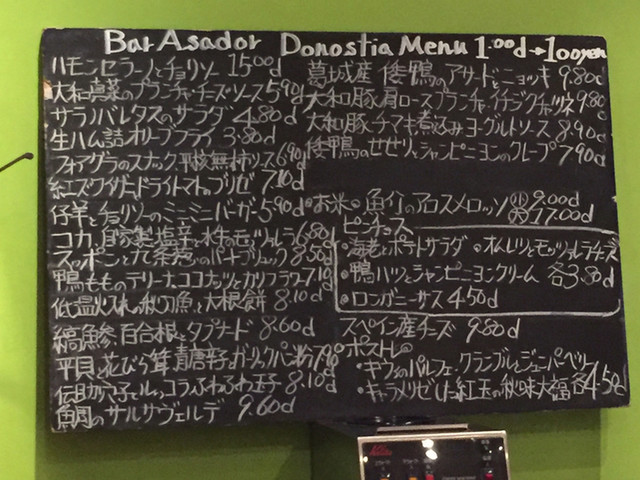 Bar Asador Donostia Menu 1.00d→100yen
ハモンセラーノとチョリソー 15.00d
大和真菜のプランチャ・チーズ・ソース 5.90d
サラバレタスのサラダ 4.80d
生ハム詰オリーブフライ 3.80d
フォアグラのスナック 平核無柿ソース 6.90d
紅ズワイガニ ドライトマトのブリゼ 7.10d
仔羊とチョリソーのミニミニバーガー 5.90d
コカ、自家製塩辛と水牛のモッツァレラ 6.80d
スッポンと九条葱の 8.50d
鴨もものテリーヌ、ココナッツとカリフラワー 7.10d
低温火入れの秋刀魚と大根餅 8.10d
縞鯵、百合根とタプナード 8.60d
平貝、花びら茸、青唐辛子、ガーリックパン粉 7.90d
伝助穴子とルッコラ、ふわふわ玉子 8.10d
鯛のサルサヴェルデ 9.60d
葛城産 倭鴨のアサードとニョッキ 9.80d
大和豚肩ロースプランチャ・イチジクチャツネ 9.80
大和豚チマキ煮込み ヨーグルトソース 8.90d
倭鴨のせせりとシャンピニヨンのクレープ 7.90d
・お米・魚介のアロスメロッソ 小 9.00d 大 17.00d
ピンチョス
・海老とポテトサラダ ・オムレツとモッツァレラチーズ
・鴨ハツとシャンピニヨンクリーム 各3.80d
・ロンガニーサス 4.50d
スペイン産チーズ 9.80d
ポストレ
・キウイのパルフェ・クランブルとジュニパーベリー
・キャラメリゼした紅玉の秋味大福 各4.50d